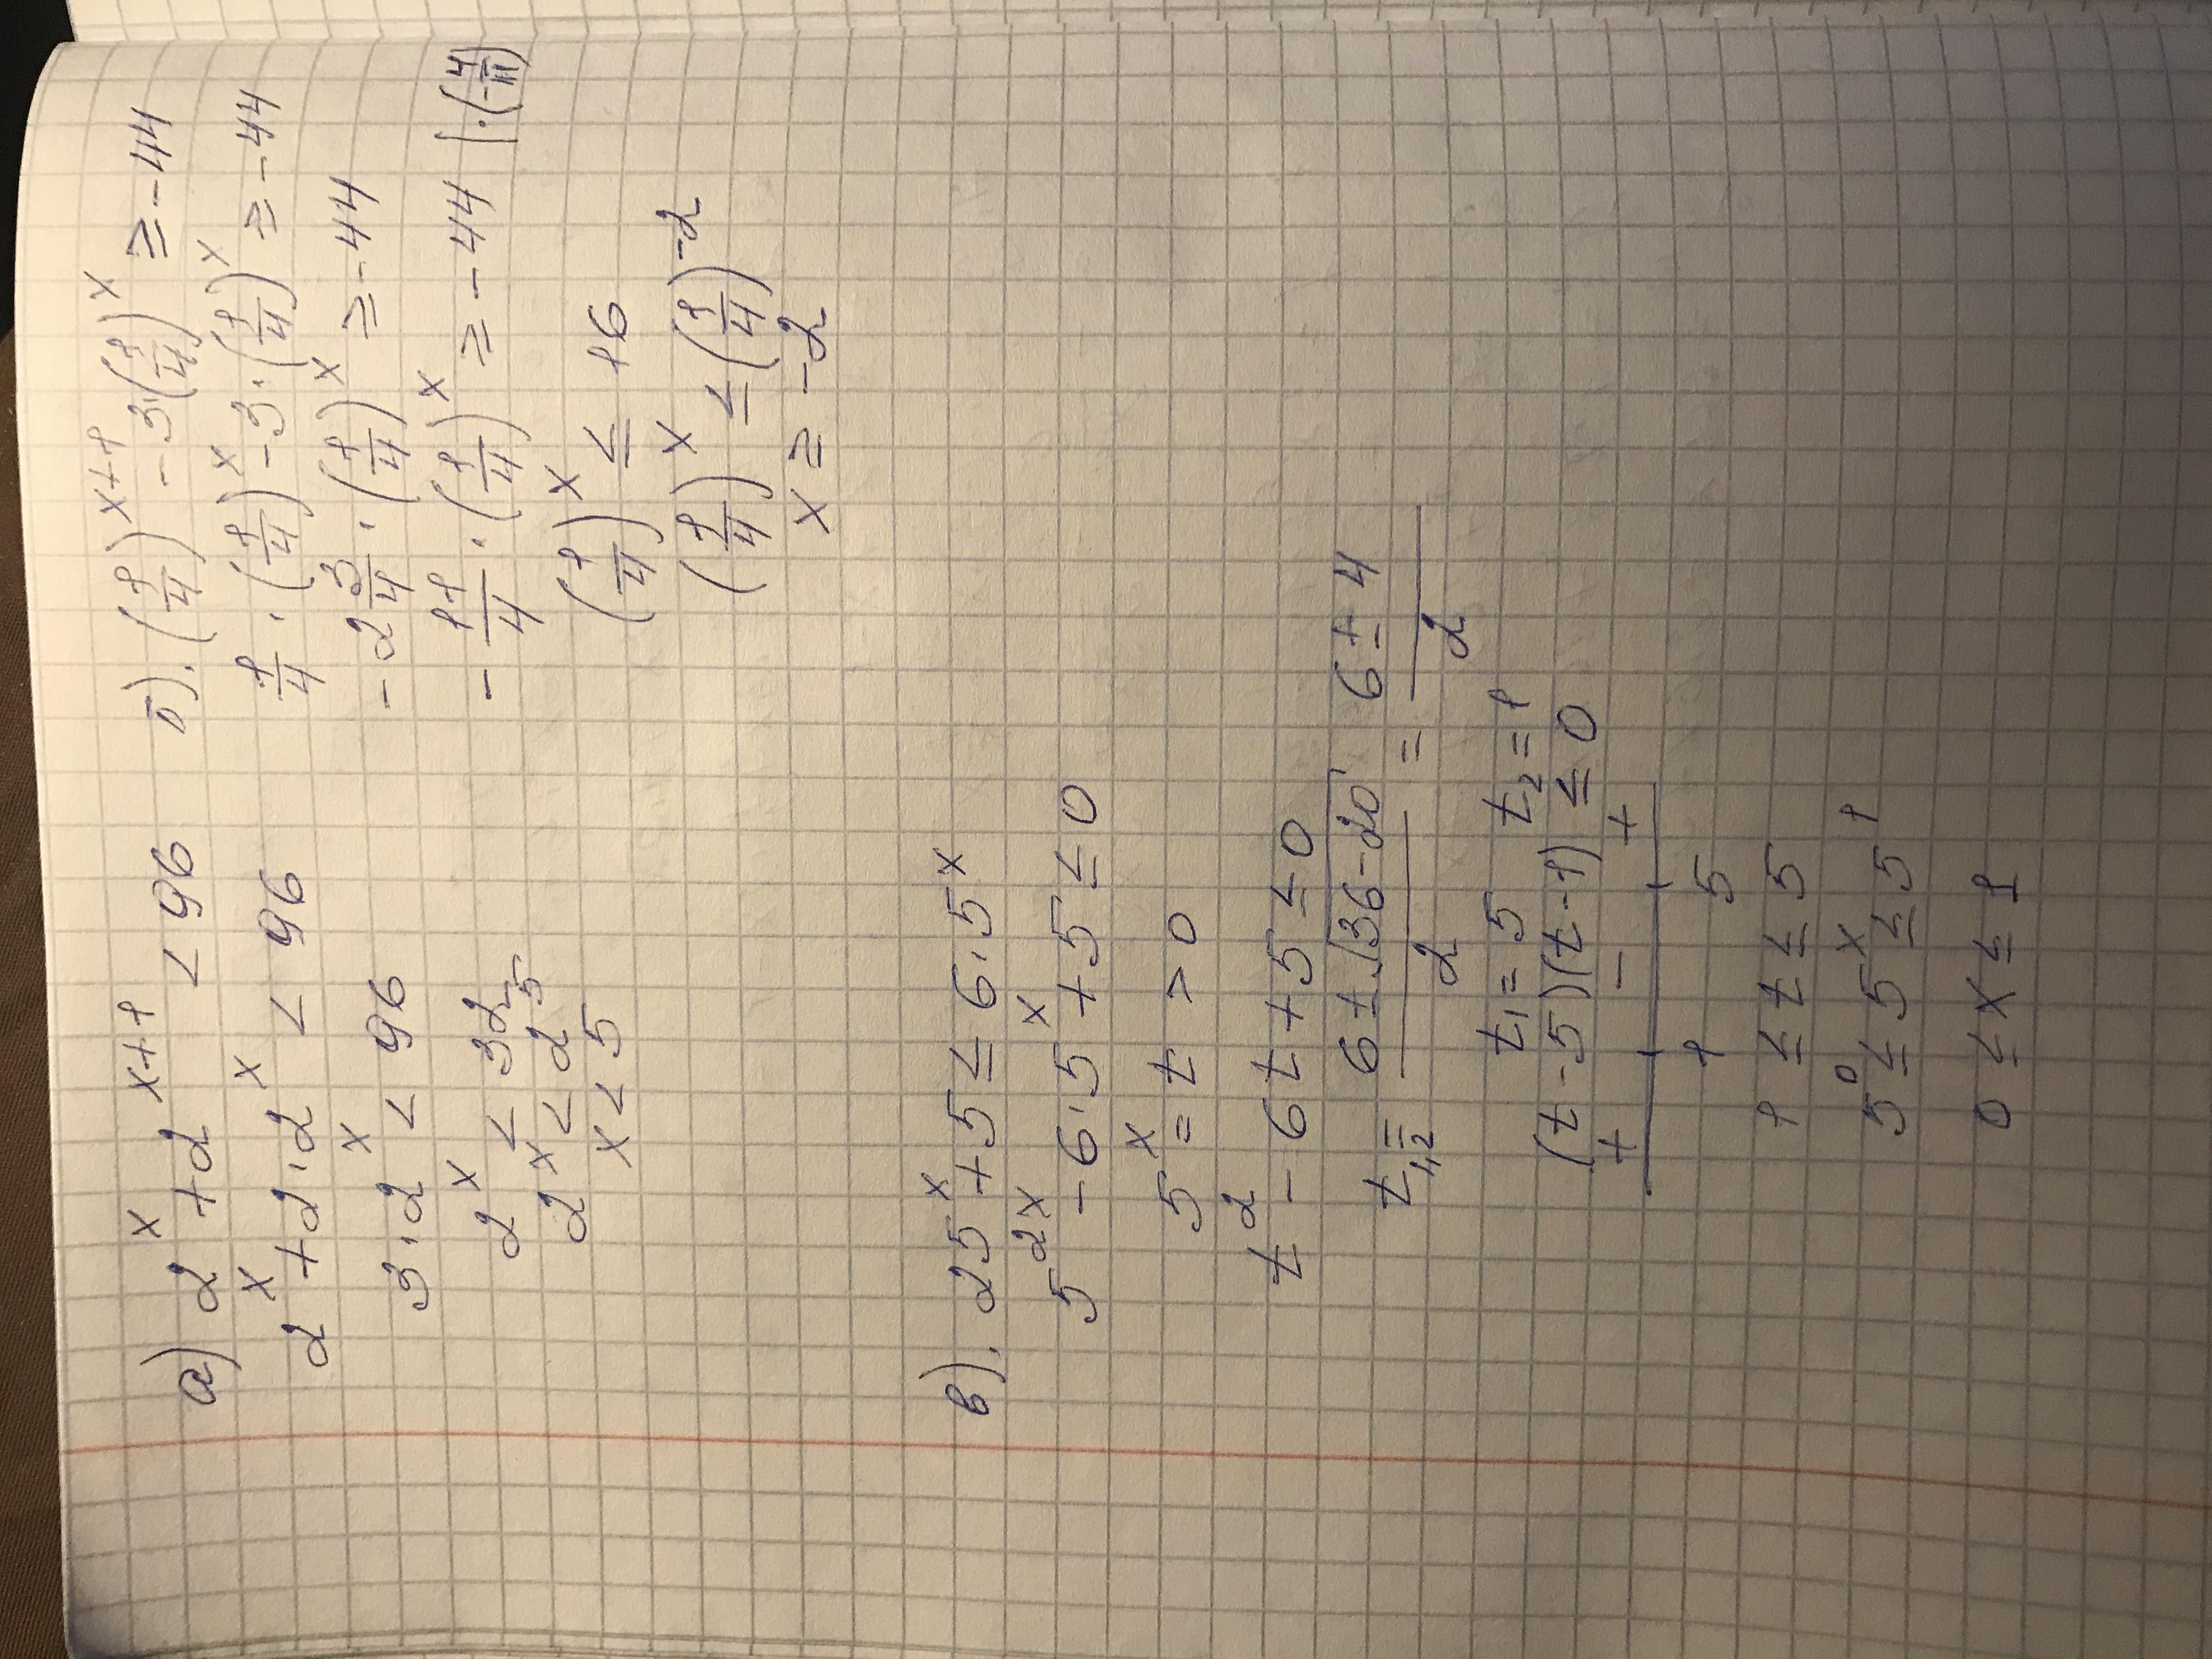 а) 2^x + 2^(x+1) < 96
2^x + 2·2^x < 96
3·2^x < 96
2^x < 32
2^x < 2^5
x < 5
б). (1/4)^(x+1) - 3·(1/4)^x ≥ -44
1/4 · (1/4)^x - 3·(1/4)^x ≥ -44
-2 3/4 · (1/4)^x ≥ -44
-11/4 · (1/4)^x ≥ -44 | ·(-4/11)
(1/4)^x ≤ 16
(1/4)^x ≤ (1/4)^(-2)
x ≥ -2
в). 25^x + 5 ≤ 6·5^x
5^(2x) - 6·5^x + 5 ≤ 0
5^x = t > 0
t^2 - 6t + 5 ≤ 0
t_1,2 = (6 ± √(36-20))/2 = (6 ± 4)/2
t_1 = 5 t_2 = 1
(t-5)(t-1) ≤ 0
+ - +
1 5
1 ≤ t ≤ 5
5^0 ≤ 5^x ≤ 5^1
0 ≤ x ≤ 1